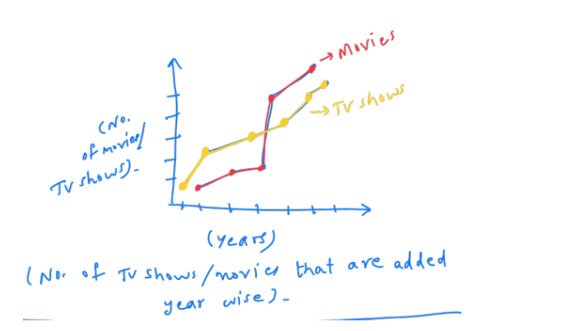 → Movies
→ TV shows
(No.
of movies/
TV shows).
(years)
(No. of TV shows/movies that are added
year wise).